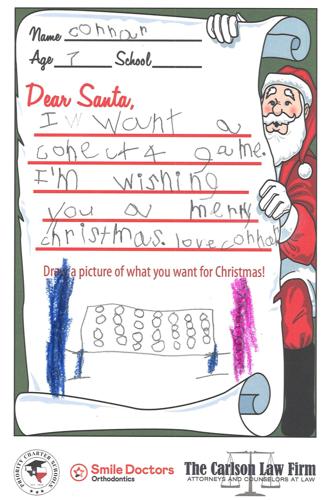 Name connor
Age 7 School
Dear Santa,
I want a
conect 4 game.
I'm wishing
you a merry
christmas. love connor
Draw a picture of what you want for Christmas!
PRIORITY CHARTER SCHOOLS
Smile Doctors
Orthodontics
The Carlson Law Firm
ATTORNEYS AND COUNSELORS AT LAW